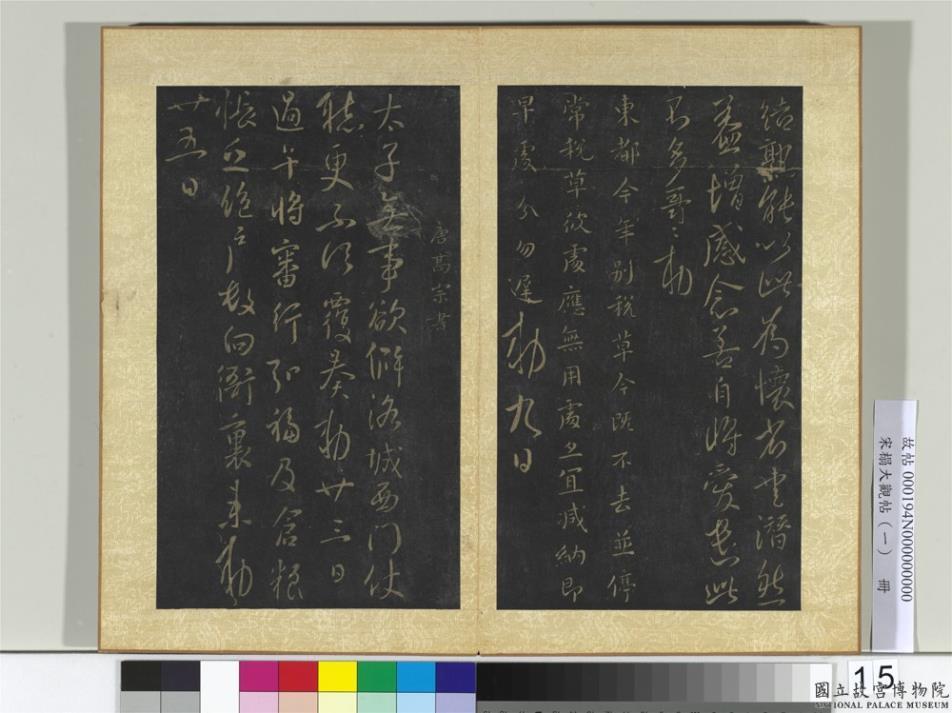 結歎能以此為懷者也潛然
益增感念善自將愛故此
不多哥哥勅
東都今年別稅草今既不去並停
常稅草彼處應無用處並宜減納即
早處分勿遲勅九日
唐高宗書
太子無事欲向洛城西門仗
聽更不須覆奏勅廿三日
過午將審行弘福及含
悵之絕戶故向衙裏來勅
廿五日
故帖000194N000000000
宋搨大觀帖(一) 冊
15
國立故宮博物院
NATIONAL PALACE MUSEUM